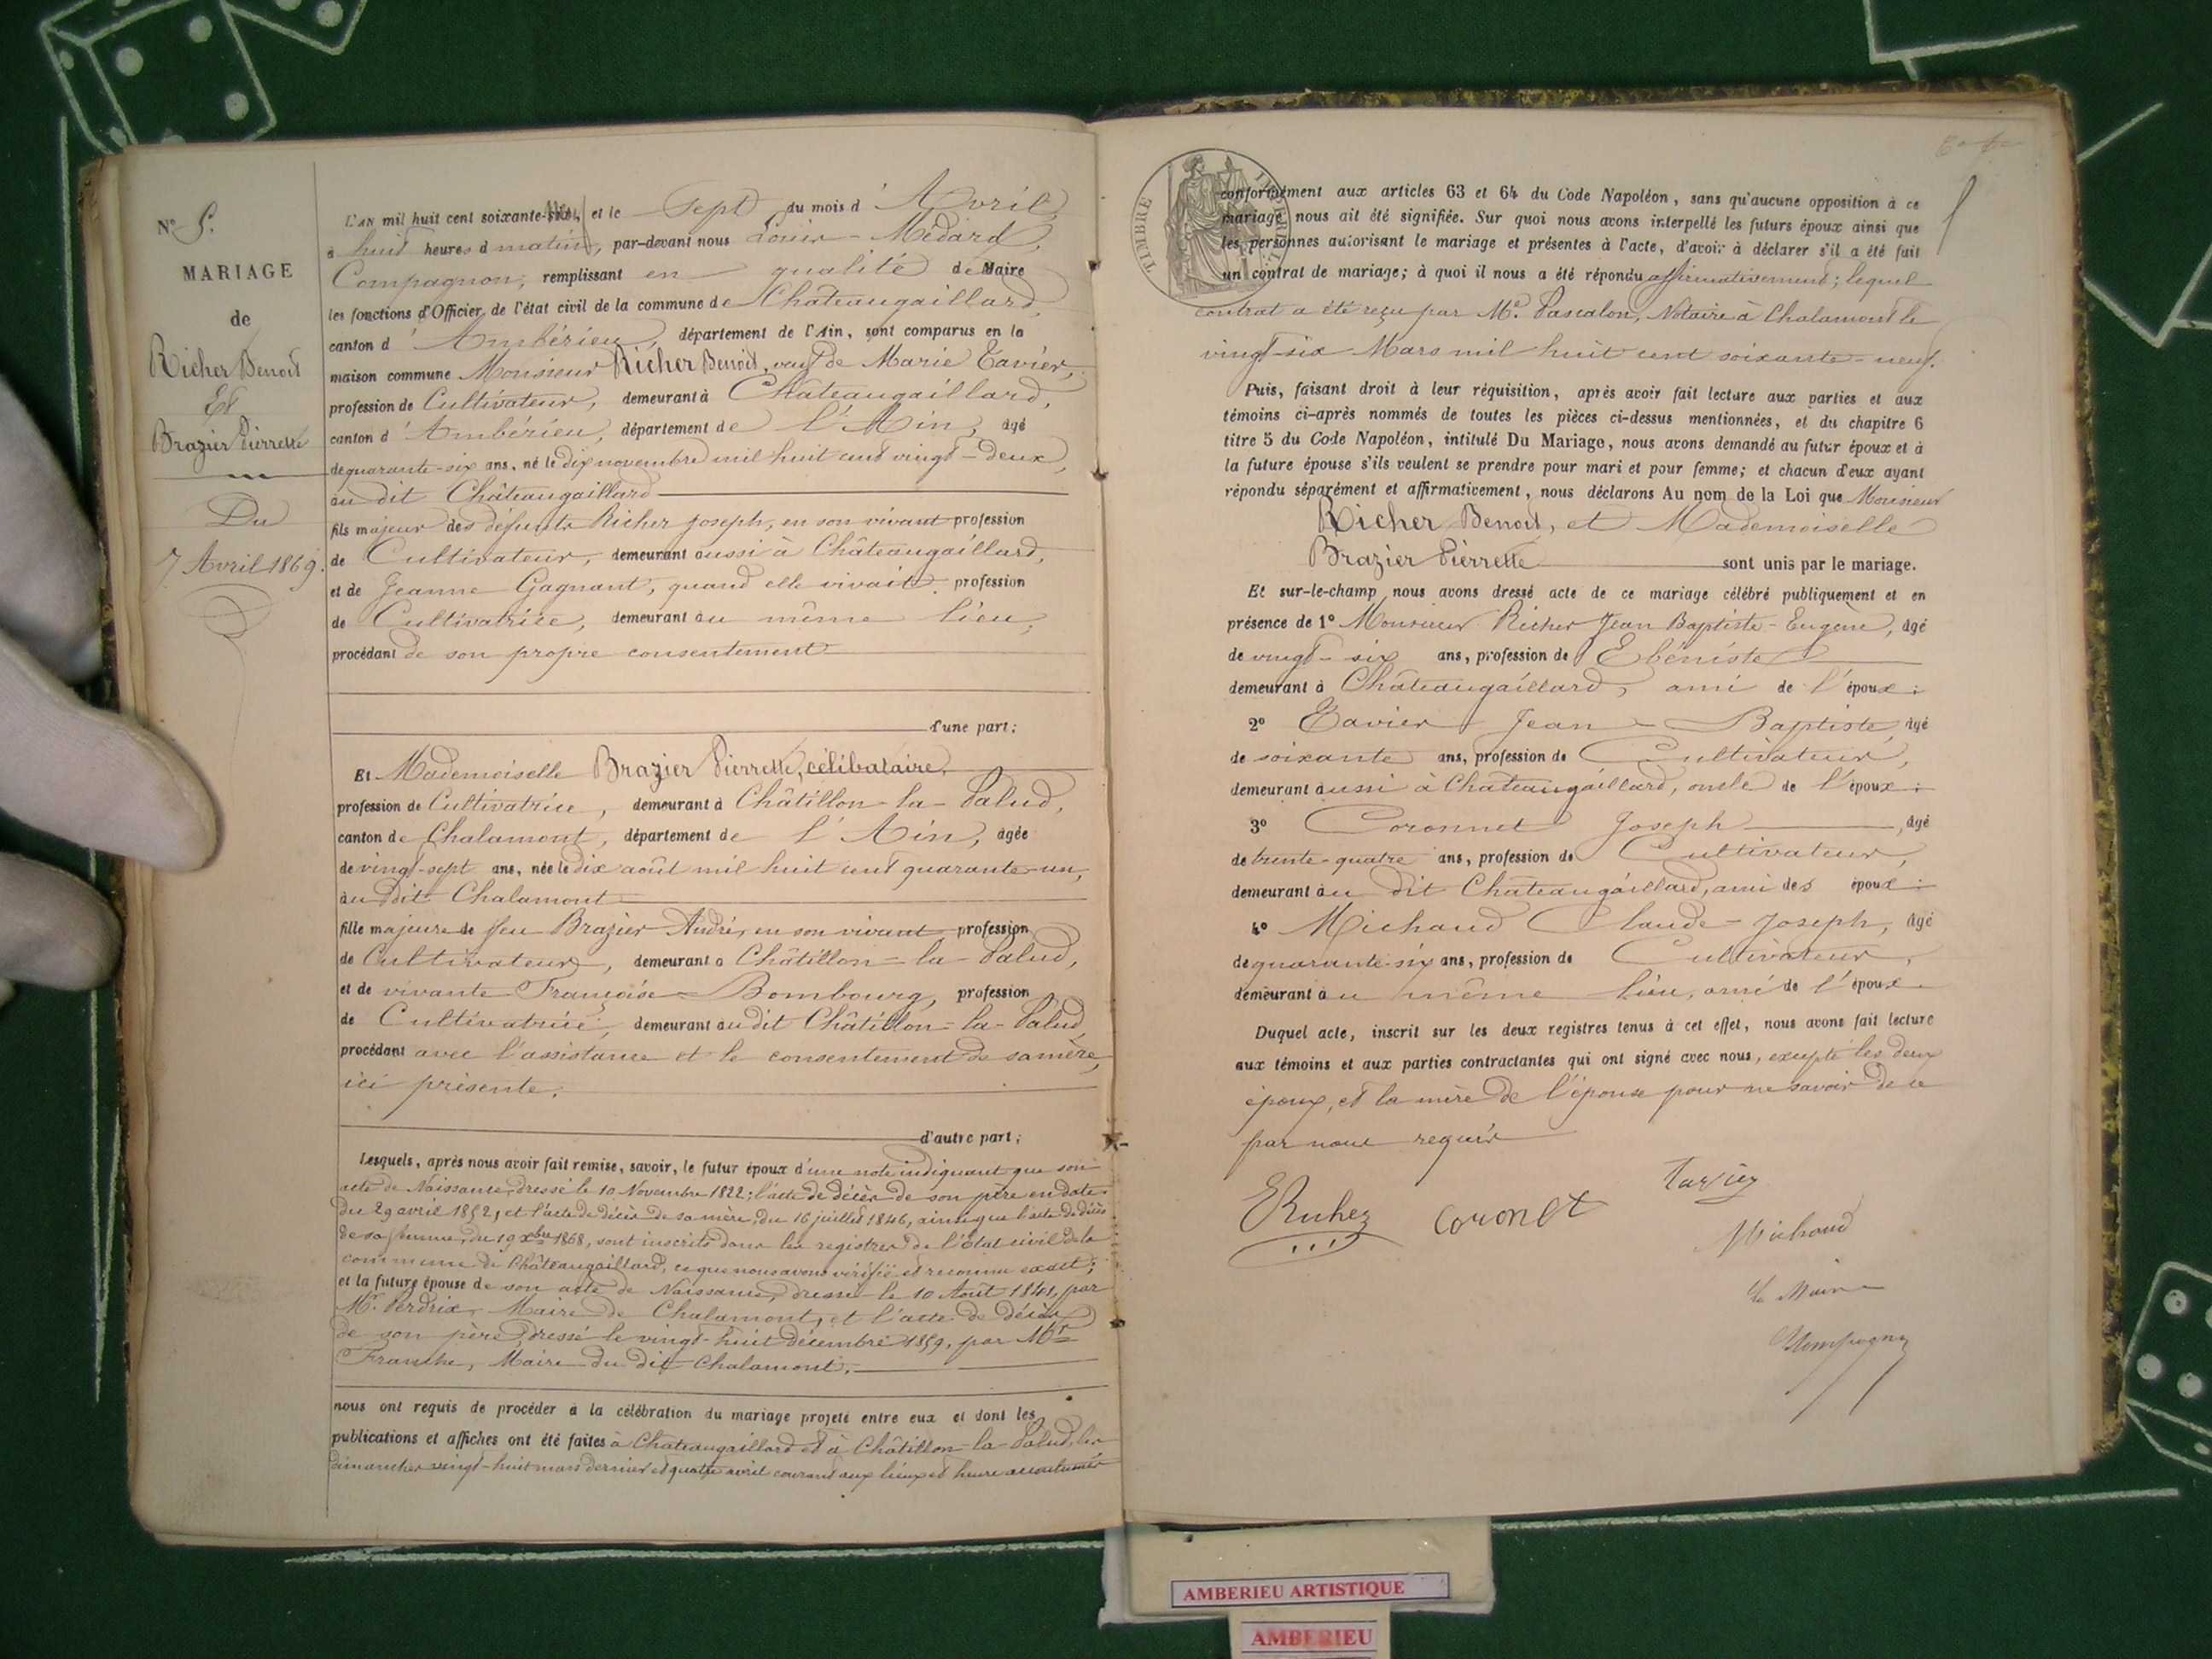 N° 5.
MARIAGE
de
Richer Benoit
Et
Brazier Pierrette
Du
7 Avril 1869.
L'AN mil huit cent soixante-neuf, et le Sept du mois d'Avril,
à huit heures d matin, par-devant nous Louis-Médard
Compagnon, remplissant en qualité de Maire
les fonctions d'Officier de l'état civil de la commune de Châteaugaillard,
canton d'Ambérieu, département de l'Ain, sont comparus en la
maison commune Monsieur Richer Benoit, veuf de Marie Tavier,
profession de Cultivateur, demeurant à Châteaugaillard,
canton d'Ambérieu, département de l'Ain, âgé
de quarante-six ans, né le dix novembre mil huit cent vingt-deux,
au dit Châteaugaillard
fils majeur des défunts Richer Joseph, en son vivant profession
de Cultivateur, demeurant aussi à Châteaugaillard,
et de Jeanne Gagnant, quand elle vivait profession
de Cultivatrice, demeurant au même lieu,
procédant de son propre consentement
d'une part;
Et Mademoiselle Brazier Pierrette, célibataire,
profession de Cultivatrice, demeurant à Châtillon-la-Palud,
canton de Chalamont, département de l'Ain, âgée
de vingt-sept ans, née le dix août mil huit cent quarante-un,
au dit Chalamont
fille majeure de feu Brazier André, en son vivant profession
de Cultivateur, demeurant à Châtillon-la-Palud,
et de vivante Françoise Bombourg, profession
de Cultivatrice, demeurant audit Châtillon-la-Palud,
procédant avec l'assistance et le consentement de sa mère,
ici présente.
d'autre part;
Lesquels, après nous avoir fait remise, savoir, le futur époux d'une note indiquant que son
acte de Naissance, dressé le 10 Novembre 1822; l'acte de décès de son père en date
du 29 avril 1852, et l'acte de décès de sa mère, du 16 juillet 1846, ainsi que l'acte de décès
de sa femme, du 19 Xbre 1868, sont inscrits dans les registres de l'état civil de la
commune de Châteaugaillard, ce que nous avons vérifié et reconnu exact;
et la future épouse de son acte de Naissance, dressé le 10 Août 1841, par
Mr. Perdrix, Maire de Chalamont, et l'acte de décès
de son père dressé le vingt-huit décembre 1859, par Mr
Franche, Maire du dit Chalamont.
nous ont requis de procéder à la célébration du mariage projeté entre eux et dont les
publications et affiches ont été faites à Châteaugaillard et à Châtillon-la-Palud, les
dimanches vingt-huit mars dernier et quatre avril courant aux lieux et heure accoutumés
TIMBRE
conformément aux articles 63 et 64 du Code Napoléon, sans qu'aucune opposition à ce
mariage nous ait été signifiée. Sur quoi nous avons interpellé les futurs époux ainsi que
les personnes autorisant le mariage et présentes à l'acte, d'avoir à déclarer s'il a été fait
un contrat de mariage; à quoi il nous a été répondu affirmativement; lequel
contrat a été reçu par Me. Pascalon, Notaire à Chalamont le
vingt-six Mars mil huit cent soixante-neuf.
Puis, faisant droit à leur réquisition, après avoir fait lecture aux parties et aux
témoins ci-après nommés de toutes les pièces ci-dessus mentionnées, et du chapitre 6
titre 5 du Code Napoléon, intitulé Du Mariage, nous avons demandé au futur époux et à
la future épouse s'ils veulent se prendre pour mari et pour femme; et chacun d'eux ayant
répondu séparément et affirmativement, nous déclarons Au nom de la Loi que Monsieur
Richer Benoit, et Mademoiselle
Brazier Pierrette sont unis par le mariage.
Et sur-le-champ nous avons dressé acte de ce mariage célébré publiquement et en
présence de 1° Monsieur Richer Jean Baptiste-Eugène, âgé
de vingt-six ans, profession de Ebéniste
demeurant à Châteaugaillard, ami de l'époux;
2° Tavier Jean-Baptiste, âgé
de soixante ans, profession de Cultivateur,
demeurant aussi à Châteaugaillard, oncle de l'époux;
3° Coronnet Joseph, âgé
de trente-quatre ans, profession de Cultivateur,
demeurant au dit Châteaugaillard, ami des époux;
4° Michaud Claude-Joseph, âgé
de quarante-six ans, profession de Cultivateur,
demeurant au même lieu, ami de l'époux.
Duquel acte, inscrit sur les deux registres tenus à cet effet, nous avons fait lecture
aux témoins et aux parties contractantes qui ont signé avec nous, excepté les deux
époux, et la mère de l'épouse pour ne savoir de ce
par nous requis
ERicher
Coronet
Tavier
Michaud
Le Maire
Compagnon
AMBERIEU ARTISTIQUE
AMBERIEU